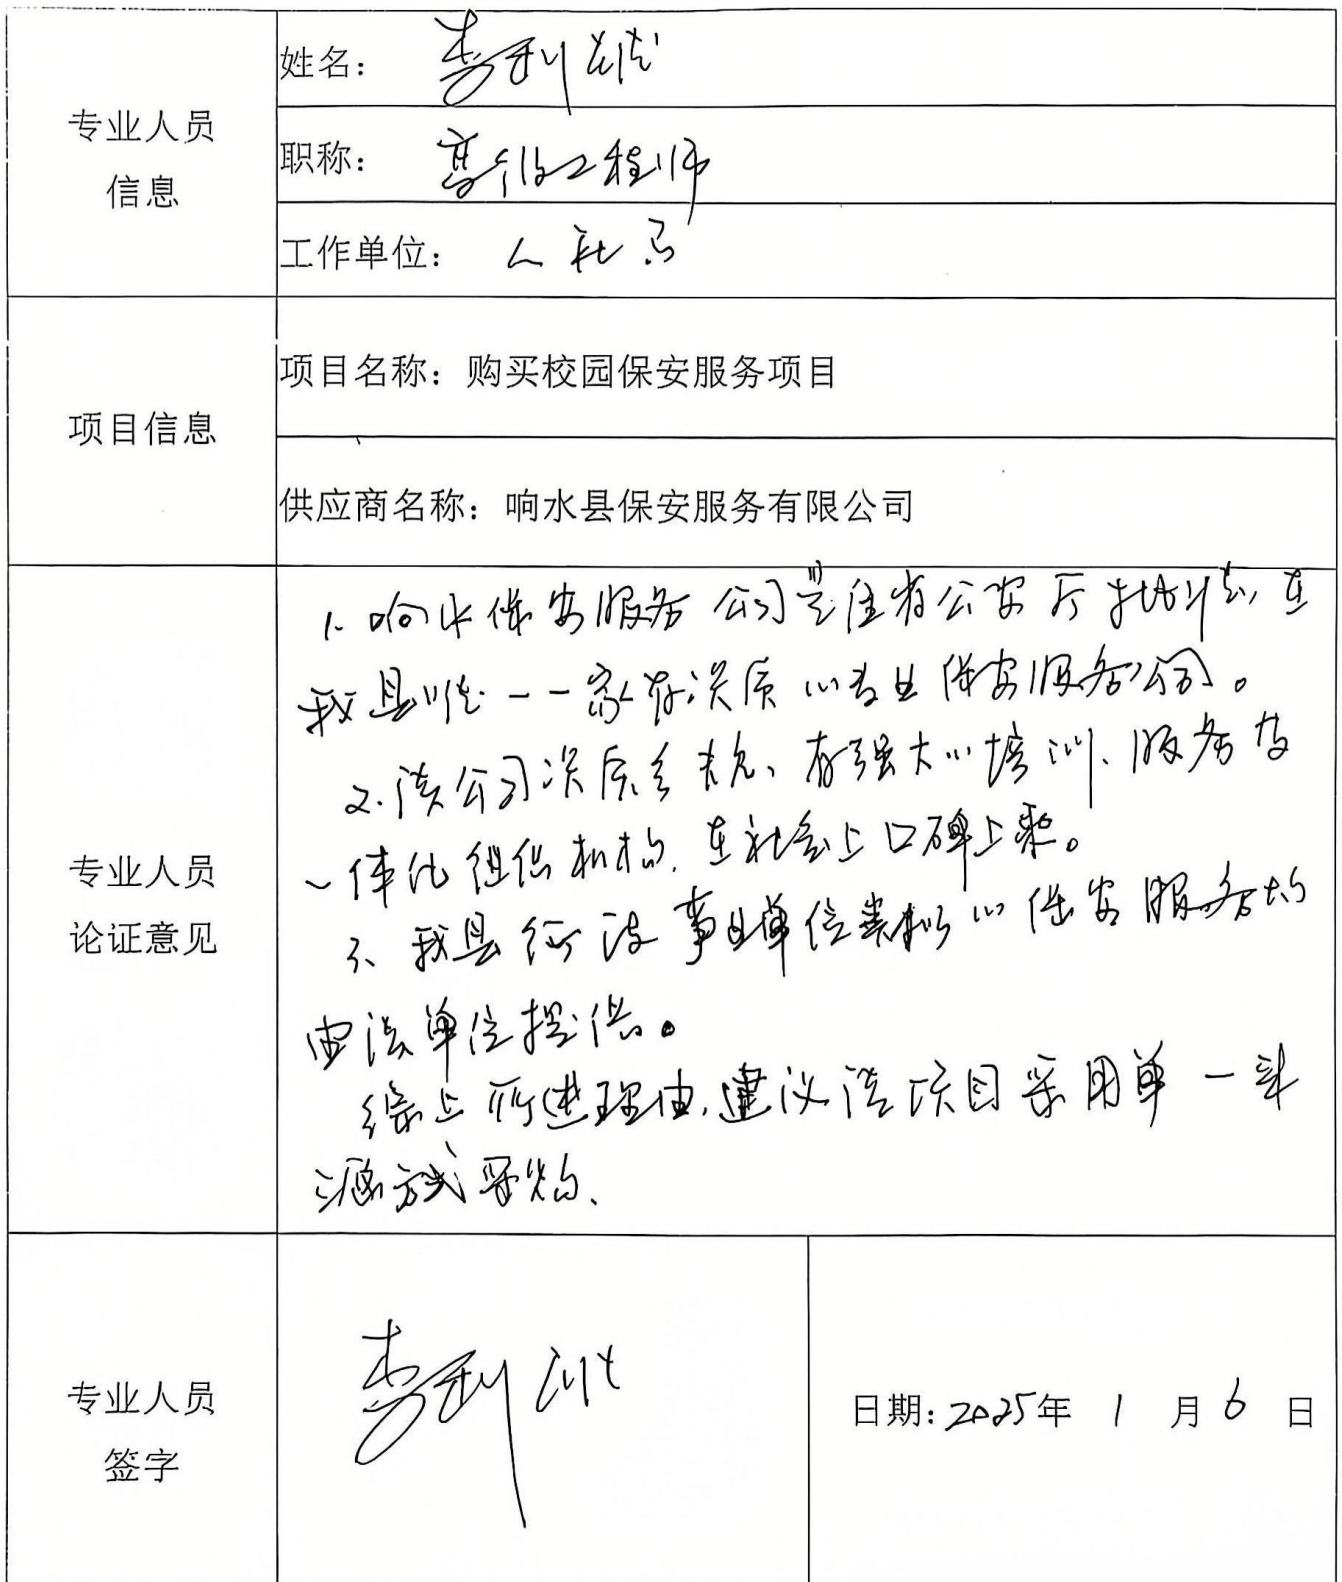 专业人员
信息
姓名：李利
职称：高级工程师
工作单位：人社局
项目信息
项目名称：购买校园保安服务项目
供应商名称：响水县保安服务有限公司
专业人员
论证意见
1. 响水保安服务公司是经省公安厅批准，在
我县唯一一家有资质的专业保安服务公司。
2. 该公司资质、有强大的培训、服务及
一体化组织机构，在社会上口碑上乘。
3、我县行政事业单位类似的保安服务均
由该单位提供。
综上所述理由，建议该项目采用单一来
源方式采购、
专业人员
签字
李利
日期：2025年 1 月 6 日